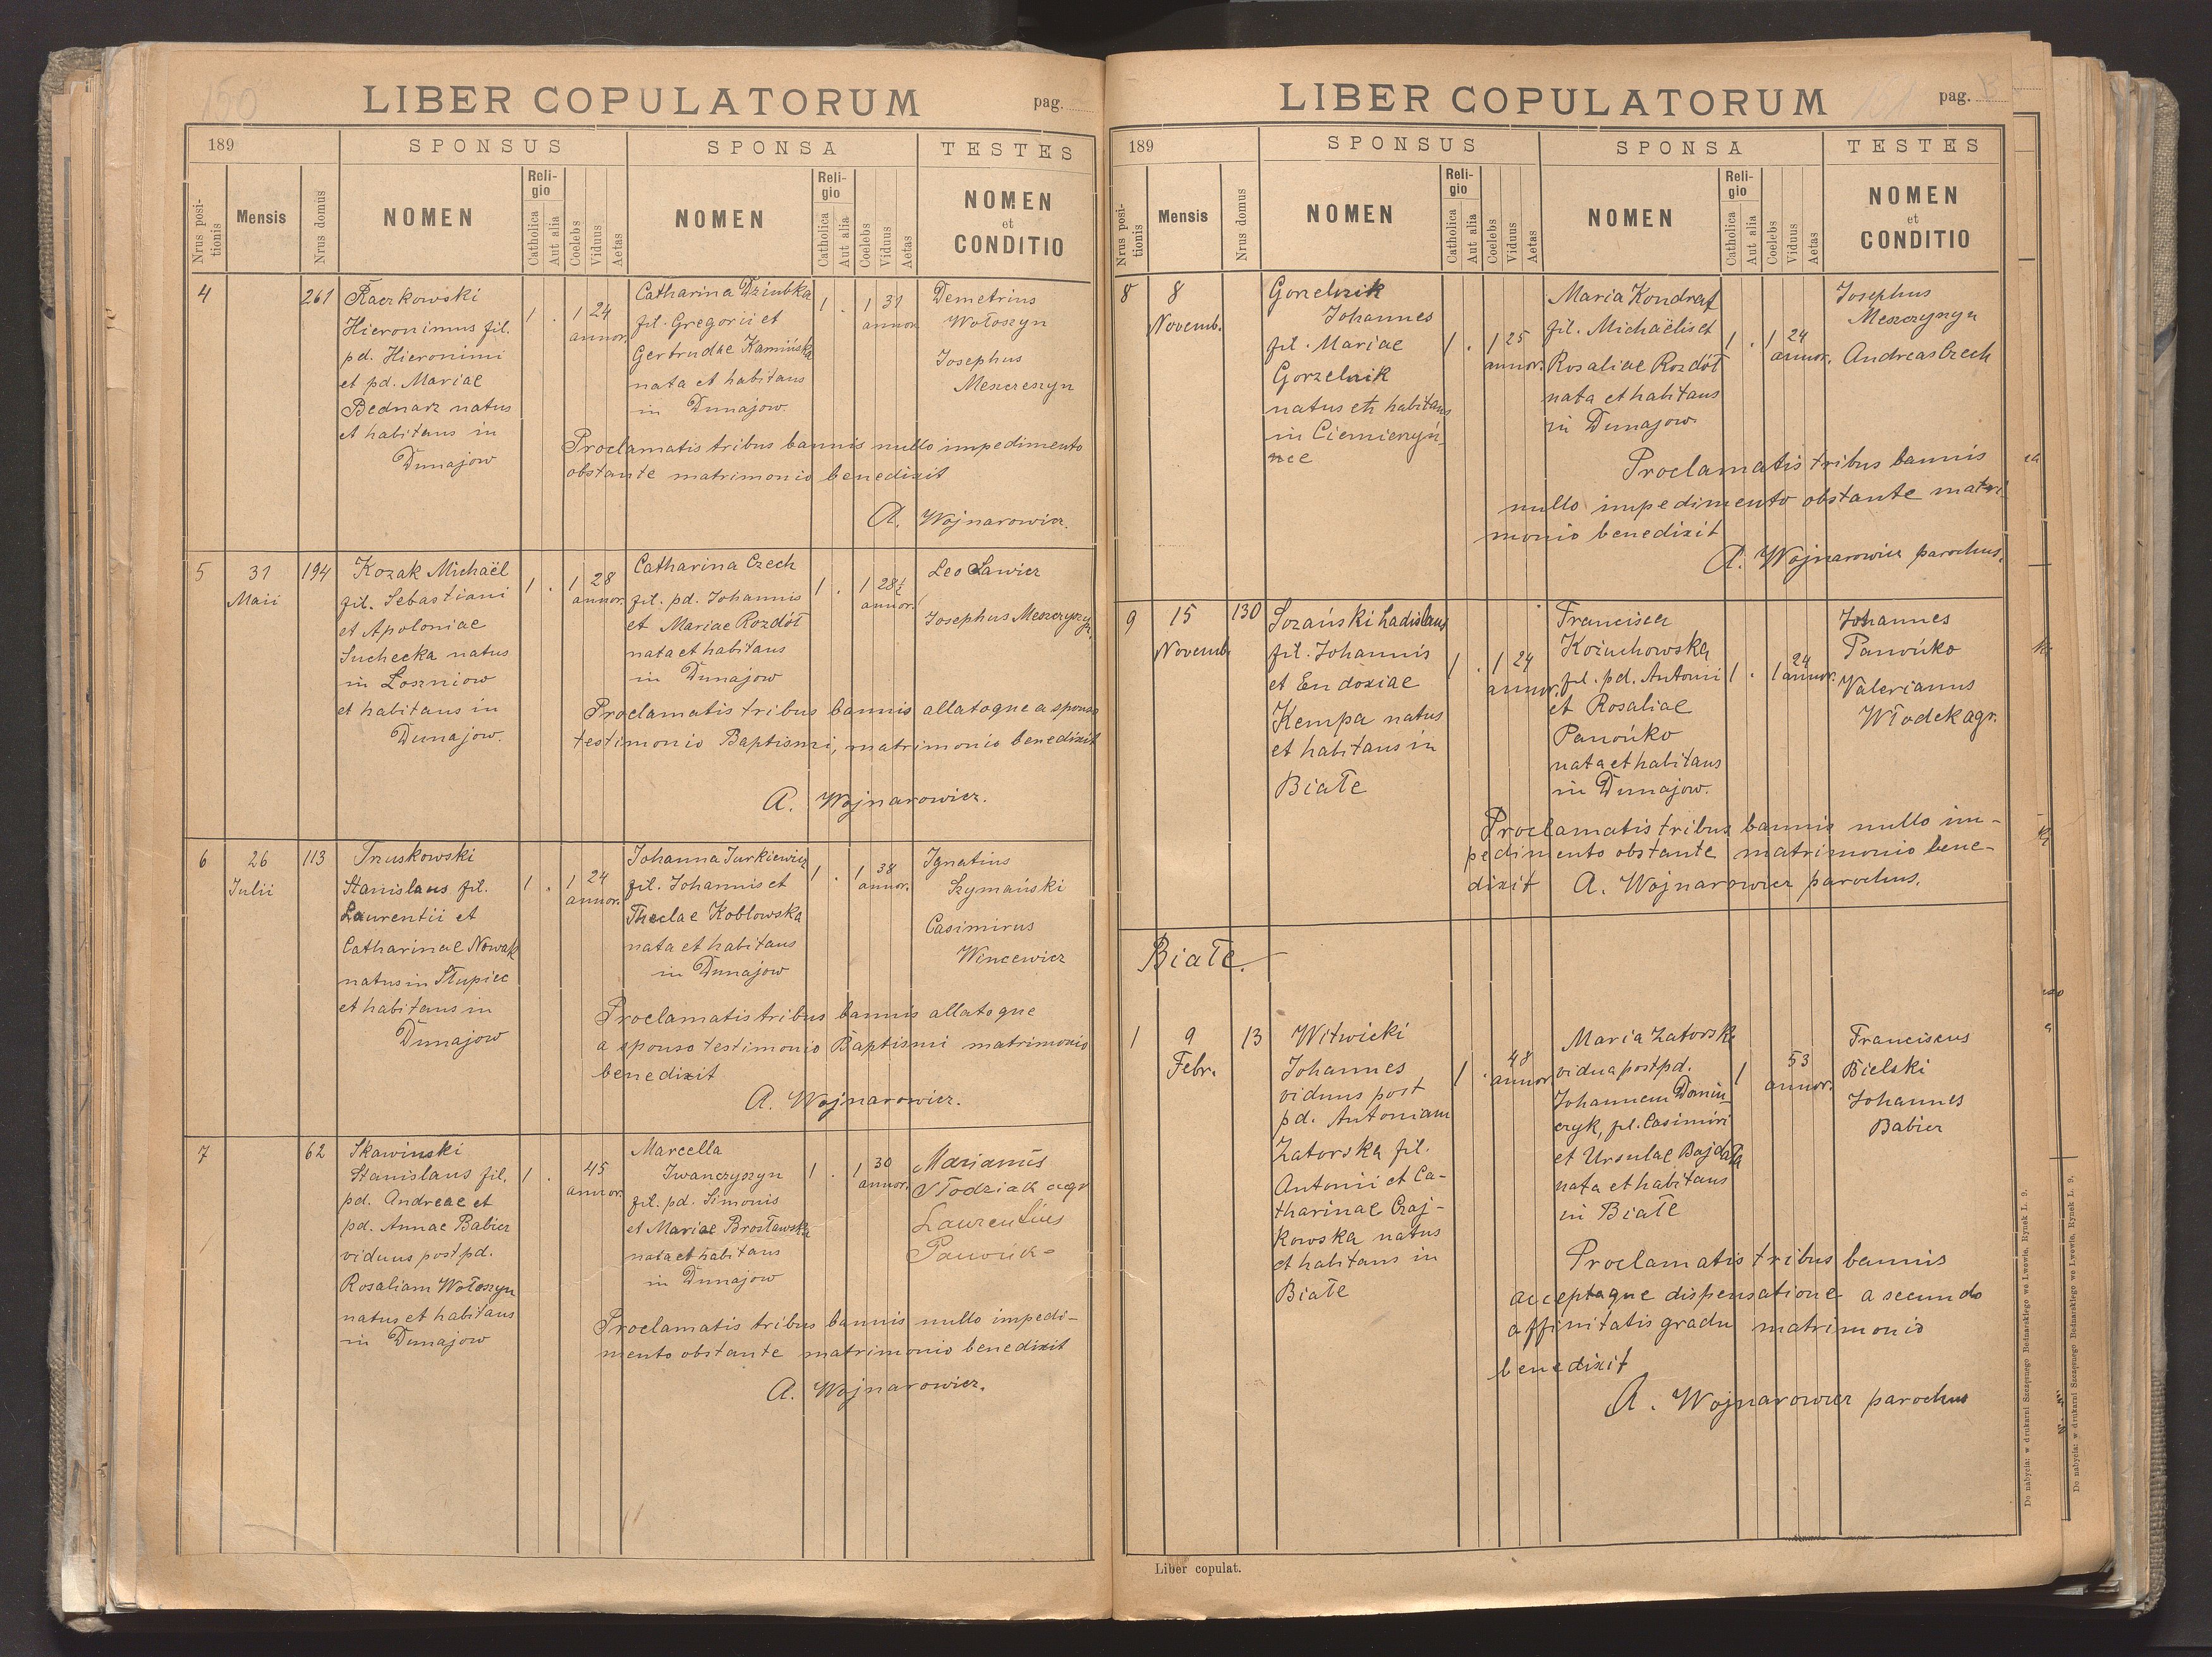 150
LIBER COPULATORUM
pag.
189
SPONSUS
SPONSA
TESTES
Nrus positionis
Mensis
Nrus domus
NOMEN
Religio
Catholica
Aut alia
Coelebs
Viduus
Aetas
NOMEN
Religio
Catholica
Aut alia
Coelebs
Viduus
Aetas
NOMEN
et
CONDITIO
4
261
Raczkowski
Hieronimus fil.
pd. Hieronimi
et pd. Mariae
Bednarz natus
et habitans in
Dunajow
1 . 1 24
annor.
Catharina Dziubka
fil. Gregorii et
Gertrudae Kamińska
nata et habitans
in Dunajow.
1 . 1 31
annor.
Demetrius
Wołoszyn
Josephus
Meszczeszyn
Proclamatis tribus bannis nullo impedimento
obstante matrimonio benedixit
A. Wojnarowicz.
5
31
Maii
194
Kozak Michaël
fil. Sebastiani
et Apoloniae
Suchecka natus
in Loszniow
et habitans in
Dunajow.
1 . 1 28
annor.
Catharina Czech
fil. pd. Johannis
et Mariae Rozdół
nata et habitans
in Dunajow
1 . 1 28½
annor.
Leo Sawicz
Josephus Meszczyszyn
Proclamatis tribus bannis allatoque a sponso
testimonio Baptismi, matrimonio benedixit
A. Wojnarowicz.
6
26
Julii
113
Truskowski
Stanislaus fil.
Laurentii et
Catharinae Nowak
natus in Słupiec
et habitans in
Dunajow
1 . 1 24
annor.
Johanna Jurkiewicz
fil. Johannis et
Theclae Koblowska
nata et habitans
in Dunajow
1 . 1 38
annor.
Ignatius
Szymański
Casimirus
Wincewicz
Proclamatis tribus bannis allatoque
a sponso testimonio Baptismi matrimonio
benedixit
A. Wojnarowicz.
7
62
Skawinski
Stanislaus fil.
pd. Andreae et
pd. Annae Babier
viduus post pd.
Rosaliam Wołoszyn
natus et habitans
in Dunajow
1 . 45
annor.
Marcella
Iwanczyszyn
fil. pd. Simonis
et Mariae Brosławska
nata et habitans
in Dunajow
1 . 1 30
annor.
Marianus
Słodziak agr
Laurentius
Proclamatis tribus bannis nullo impedi-
mento obstante matrimonio benedixit
A. Wojnarowicz.
LIBER COPULATORUM
pag.
189
SPONSUS
SPONSA
TESTES
Nrus positionis
Mensis
Nrus domus
NOMEN
Religio
Catholica
Aut alia
Coelebs
Viduus
Aetas
NOMEN
Religio
Catholica
Aut alia
Coelebs
Viduus
Aetas
NOMEN
et
CONDITIO
8
8
Novemb.
Gorzelnik
Johannes
fil. Mariae
Gorzelnik
natus et habitans
in Ciemierzyń-
nce
1 . 1 25
annor.
Maria Kondrat
fil. Michaëlis et
Rosaliae Rozdół
nata et habitans
in Dunajow
1 . 1 24
annor.
Josephus
Meszczyszyn
Andreas Czech
Proclamatis tribus bannis
nullo impedimento obstante matri
monio benedixit
A. Wojnarowicz parochus.
9
15
Novemb.
130
Sozański Ladislaus
fil. Johannis
et Eudoxiae
Kempa natus
et habitans in
Białe
1 . 1 24
annor.
Francisca
Kożuchowska
fil. pd. Antonii
et Rosaliae
Panońko
nata et habitans
in Dunajow.
1 . 1 24
annor.
Johannes
Panońko
Valerianus
Włodek agr.
Proclamatis tribus bannis nullo im-
pedimento obstante matrimonio bene-
dixit A. Wojnarowicz parochus.
Białe.
1
9
Febr.
13
Witwicki
Johannes
viduus post
pd. Antoniam
Zatorska fil.
Antonii et Ca-
tharinae Czaj-
kowska natus
et habitans in
Białe
1 . 48
annor.
Maria Zatorska
vidua post pd.
Johannem Domin-
czyk, fil. Casimiri
et Ursulae Bajdała
nata et habitans
in Białe
1 53
annor.
Franciscus
Bielski
Johannes
Babier
Proclamatis tribus bannis
acceptaque dispensatione a secundo
affinitatis gradu matrimonio
benedixit
A. Wojnarowicz parochus
Liber copulat.
Do nabycia: w drukarni Szczęsnego Bednarskiego we Lwowie, Rynek L. 9.
Do nabycia: w drukarni Szczęsnego Bednarskiego we Lwowie, Rynek L. 9.